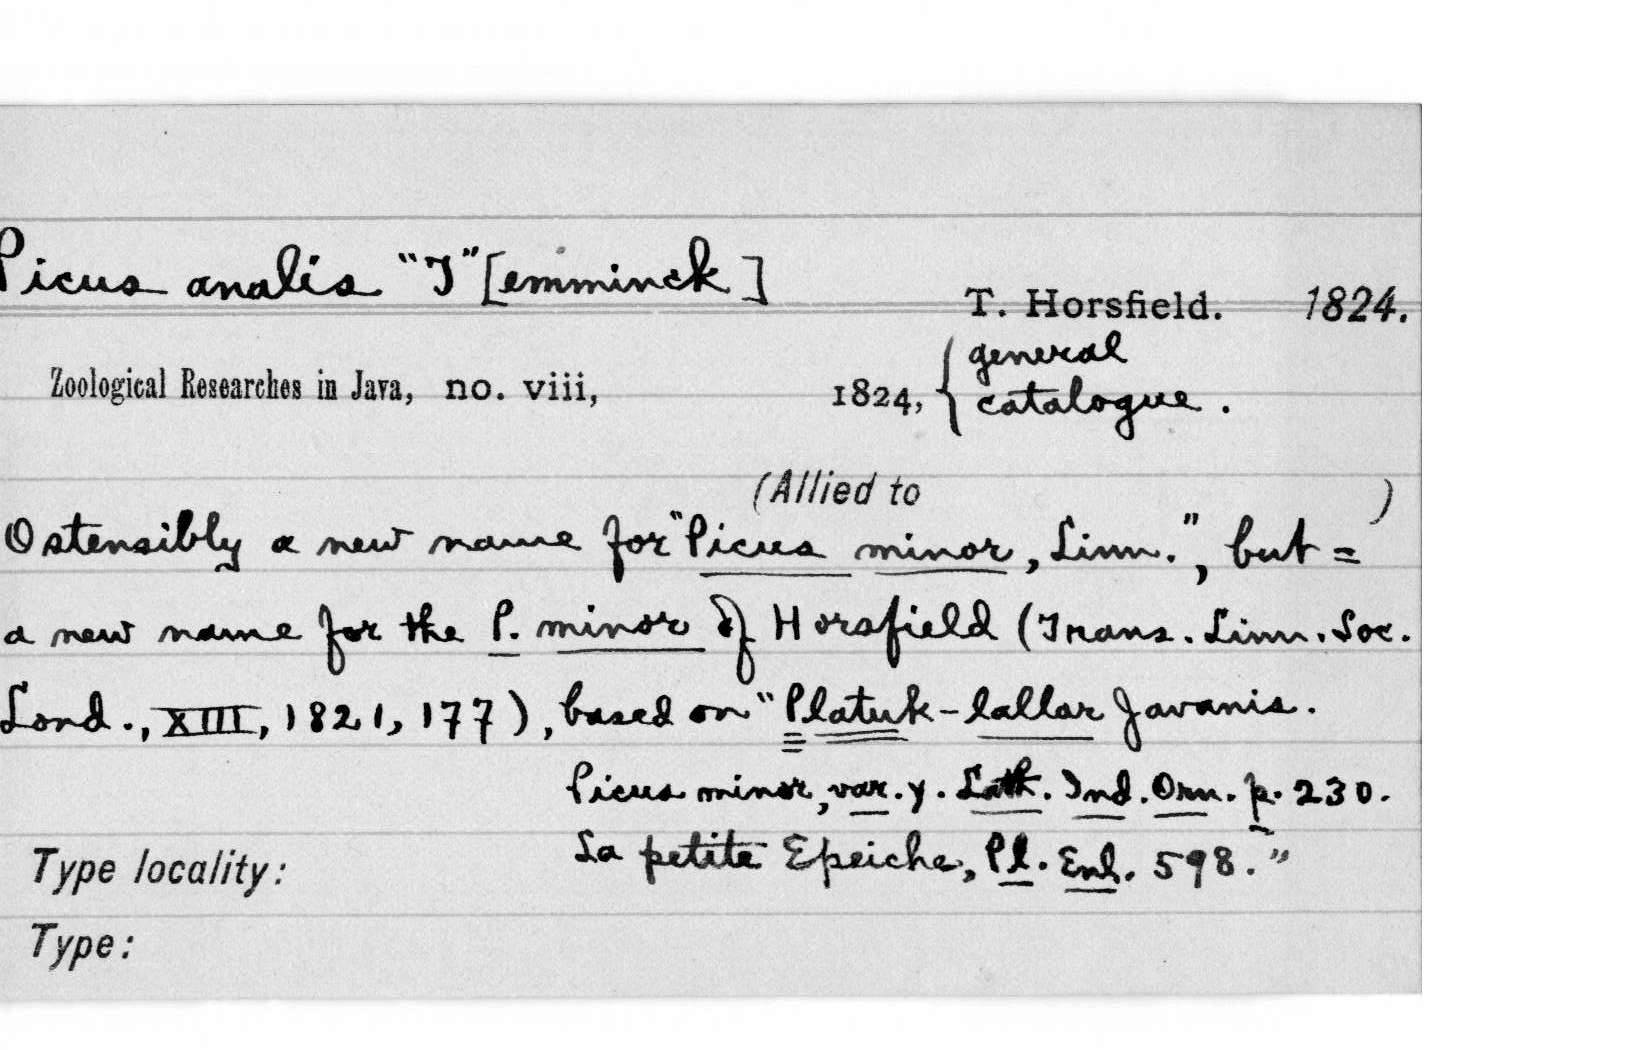 Picus analis "T" [emminck]
T. Horsfield. 1824.
Zoological Researches in Java, no. viii, 1824, { general catalogue.
(Allied to )
Ostensibly a new name for "Picus minor, Linn.", but =
a new name for the P. minor of Horsfield (Trans. Linn. Soc.
Lond., XIII, 1821, 177), based on "Platuk-lallar Javanis.
Picus minor, var. γ. Lath. Ind. Orn. p. 230.
La petite Epeiche, Pl. Enl. 598."
Type locality:
Type: